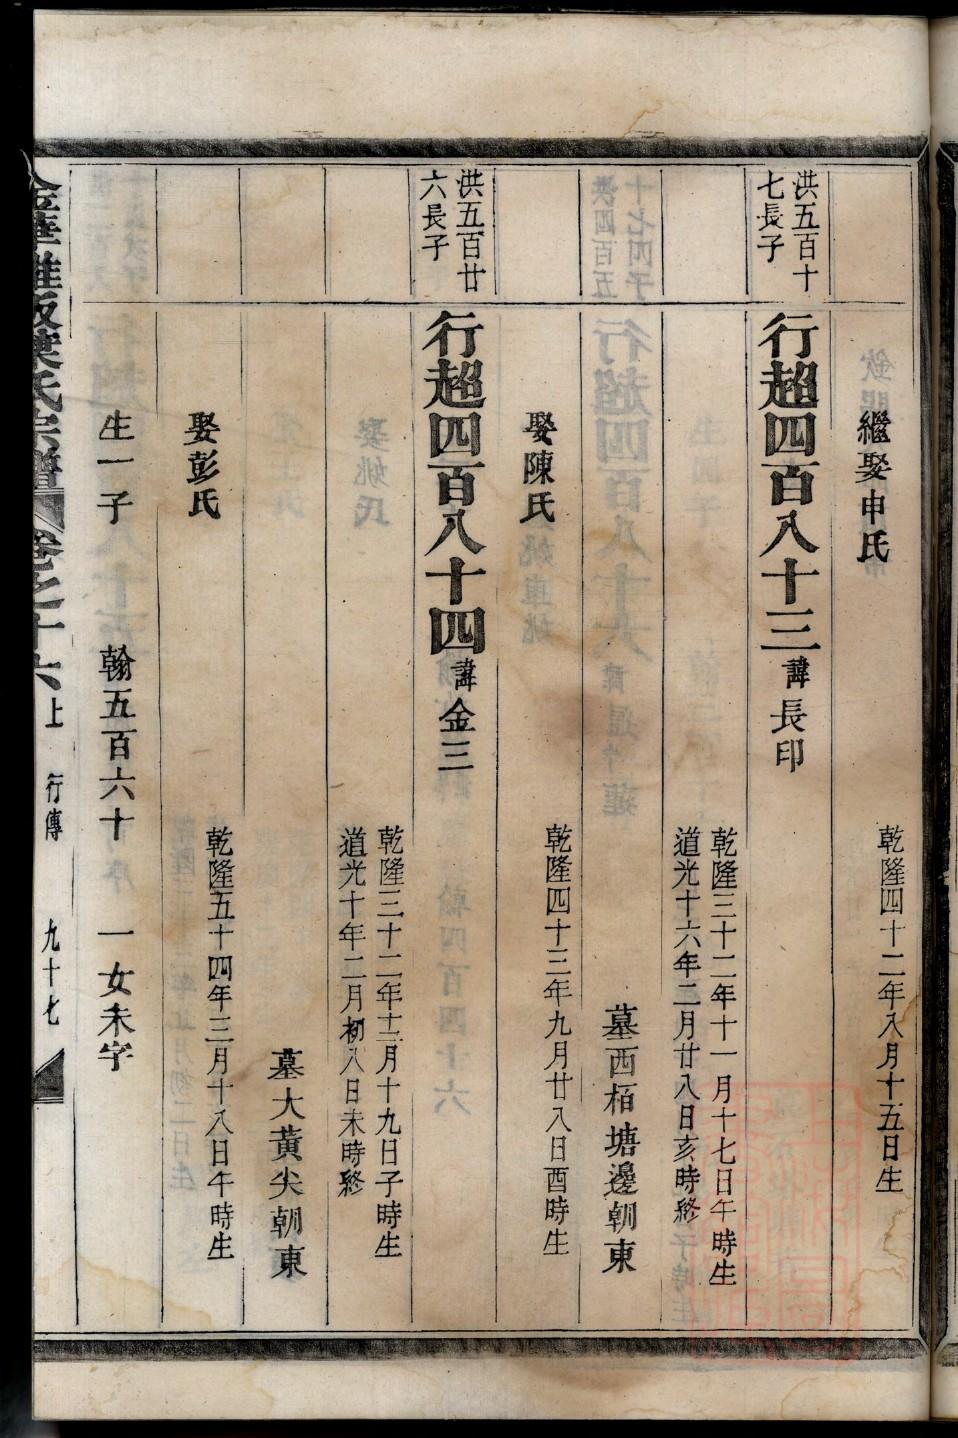 繼娶申氏
乾隆四十二年八月十五日生
洪五百十
七長子
行超四百八十三諱長印
乾隆三十二年十一月十七日午時生
道光十六年二月廿八日亥時終
墓西栢塘邊朝東
娶陳氏
乾隆四十三年九月廿八日酉時生
洪五百廿
六長子
行超四百八十四諱金三
乾隆三十二年十二月十九日子時生
道光十年二月初八日未時終
墓大黃尖朝東
娶彭氏
乾隆五十四年三月十八日午時生
生一子 翰五百六十 一女未字
氏宗譜 卷之十六上 行傳 九十七